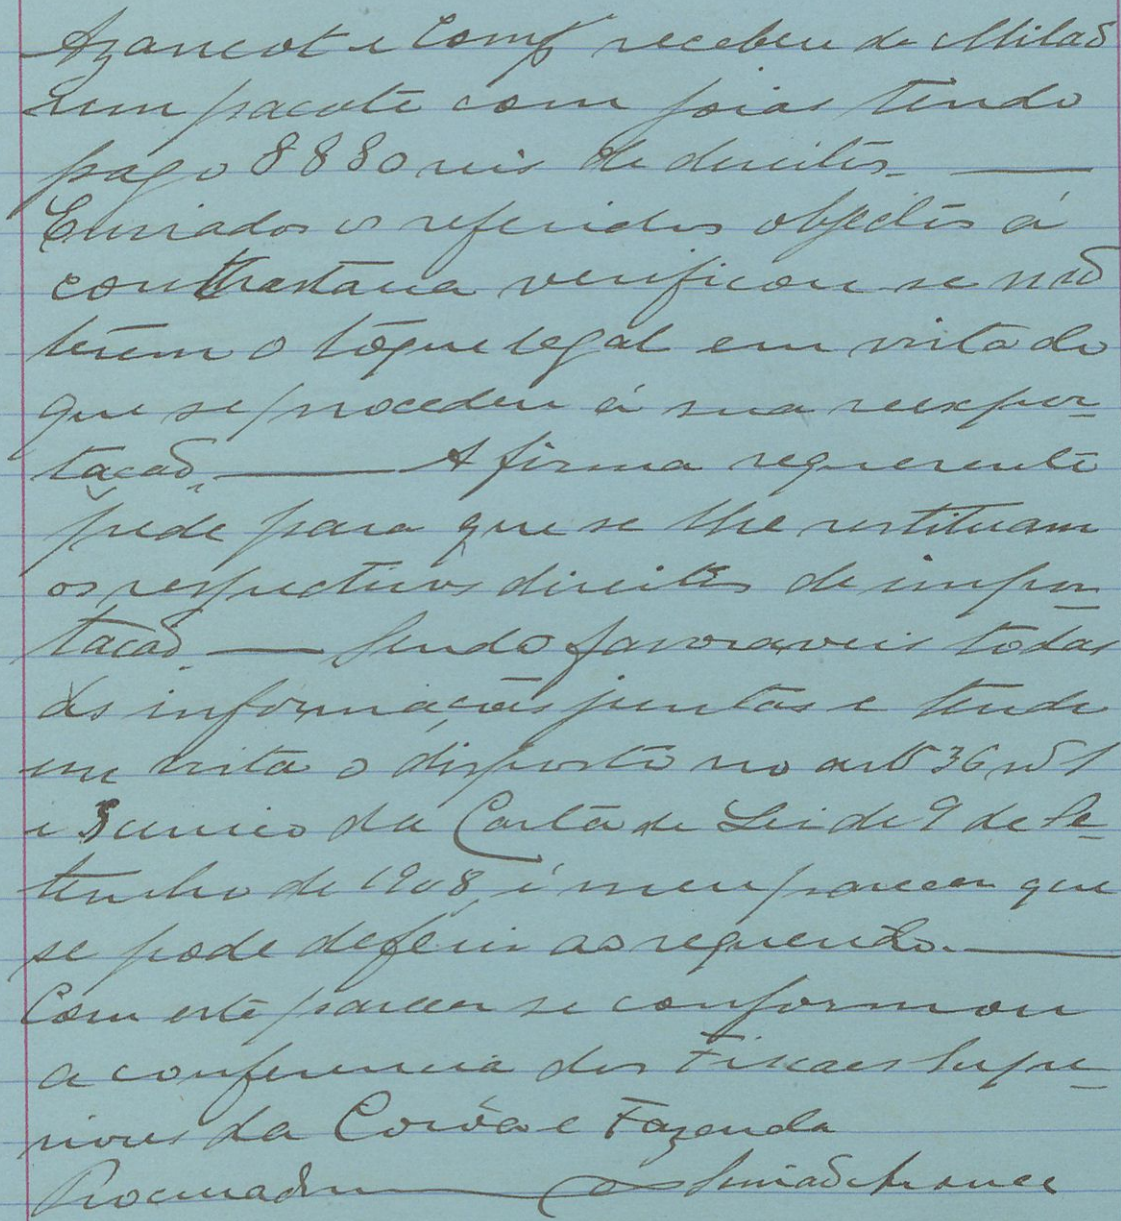 Azancot e Comp.ª recebeu de Milaõ
um pacote com joias tendo
pago 8880 reis de direitos. —
Enviados os referidos objectos á
contrastaria verificou se naõ
terem o tóque legal em vista do
que se procedeu á sua reexpor-
tacaõ. — A firma requerente
péde para que se lhe restituam
os respectivos direitos de impor-
tacaõ. — Sendo favoraveis todas
as informações juntas e tendo
em vista o disposto no artº 36 nº 1
e § unico da Carta de Lei de 9 de Se-
tembro de 1908, é meu parecer que
se pode deferir ao requerido. —
Com este parecer se conformou
a conferencia dos Fiscaes Supe-
riores da Corôa e Fazenda
Procurador —